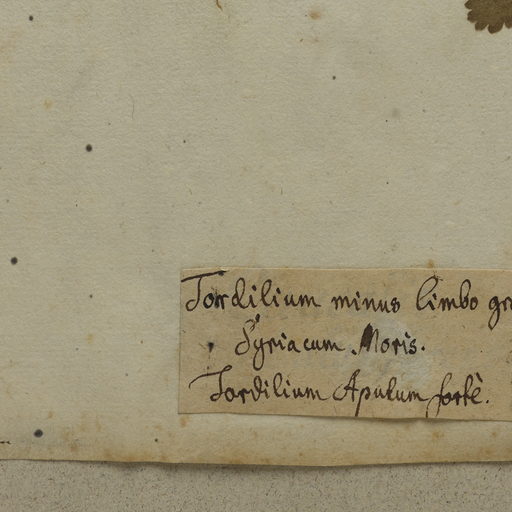 Tordilium minus limbo gr
Syriacum. Moris.
Tordilium Apulum fortè.